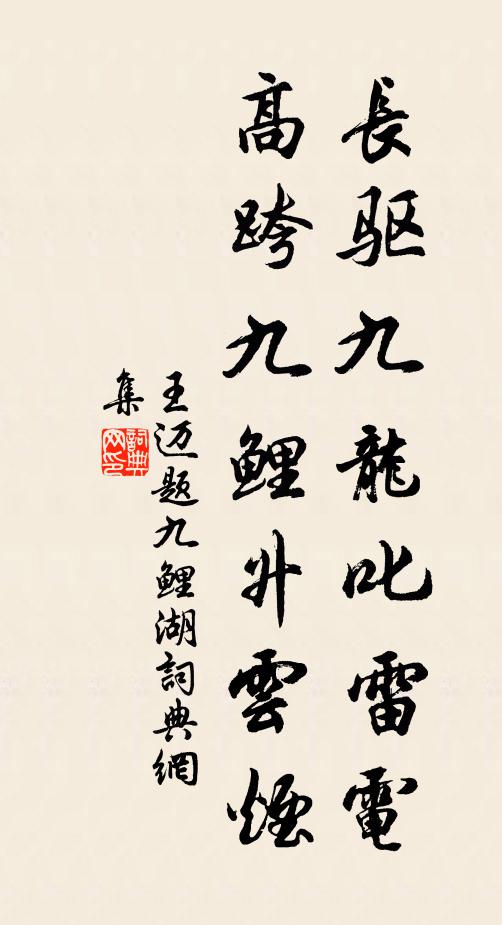 長驱九龍叱雷電
高跨九鯉升雲煙
王迈题九鯉湖詞典網
集
詞典网印